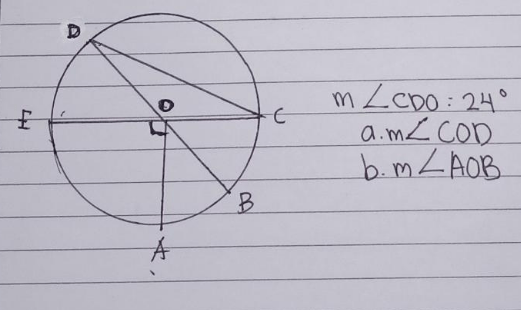 D
O
E
C
B
A
m∠CDO: 24°
a. m∠COD
b. m∠AOB